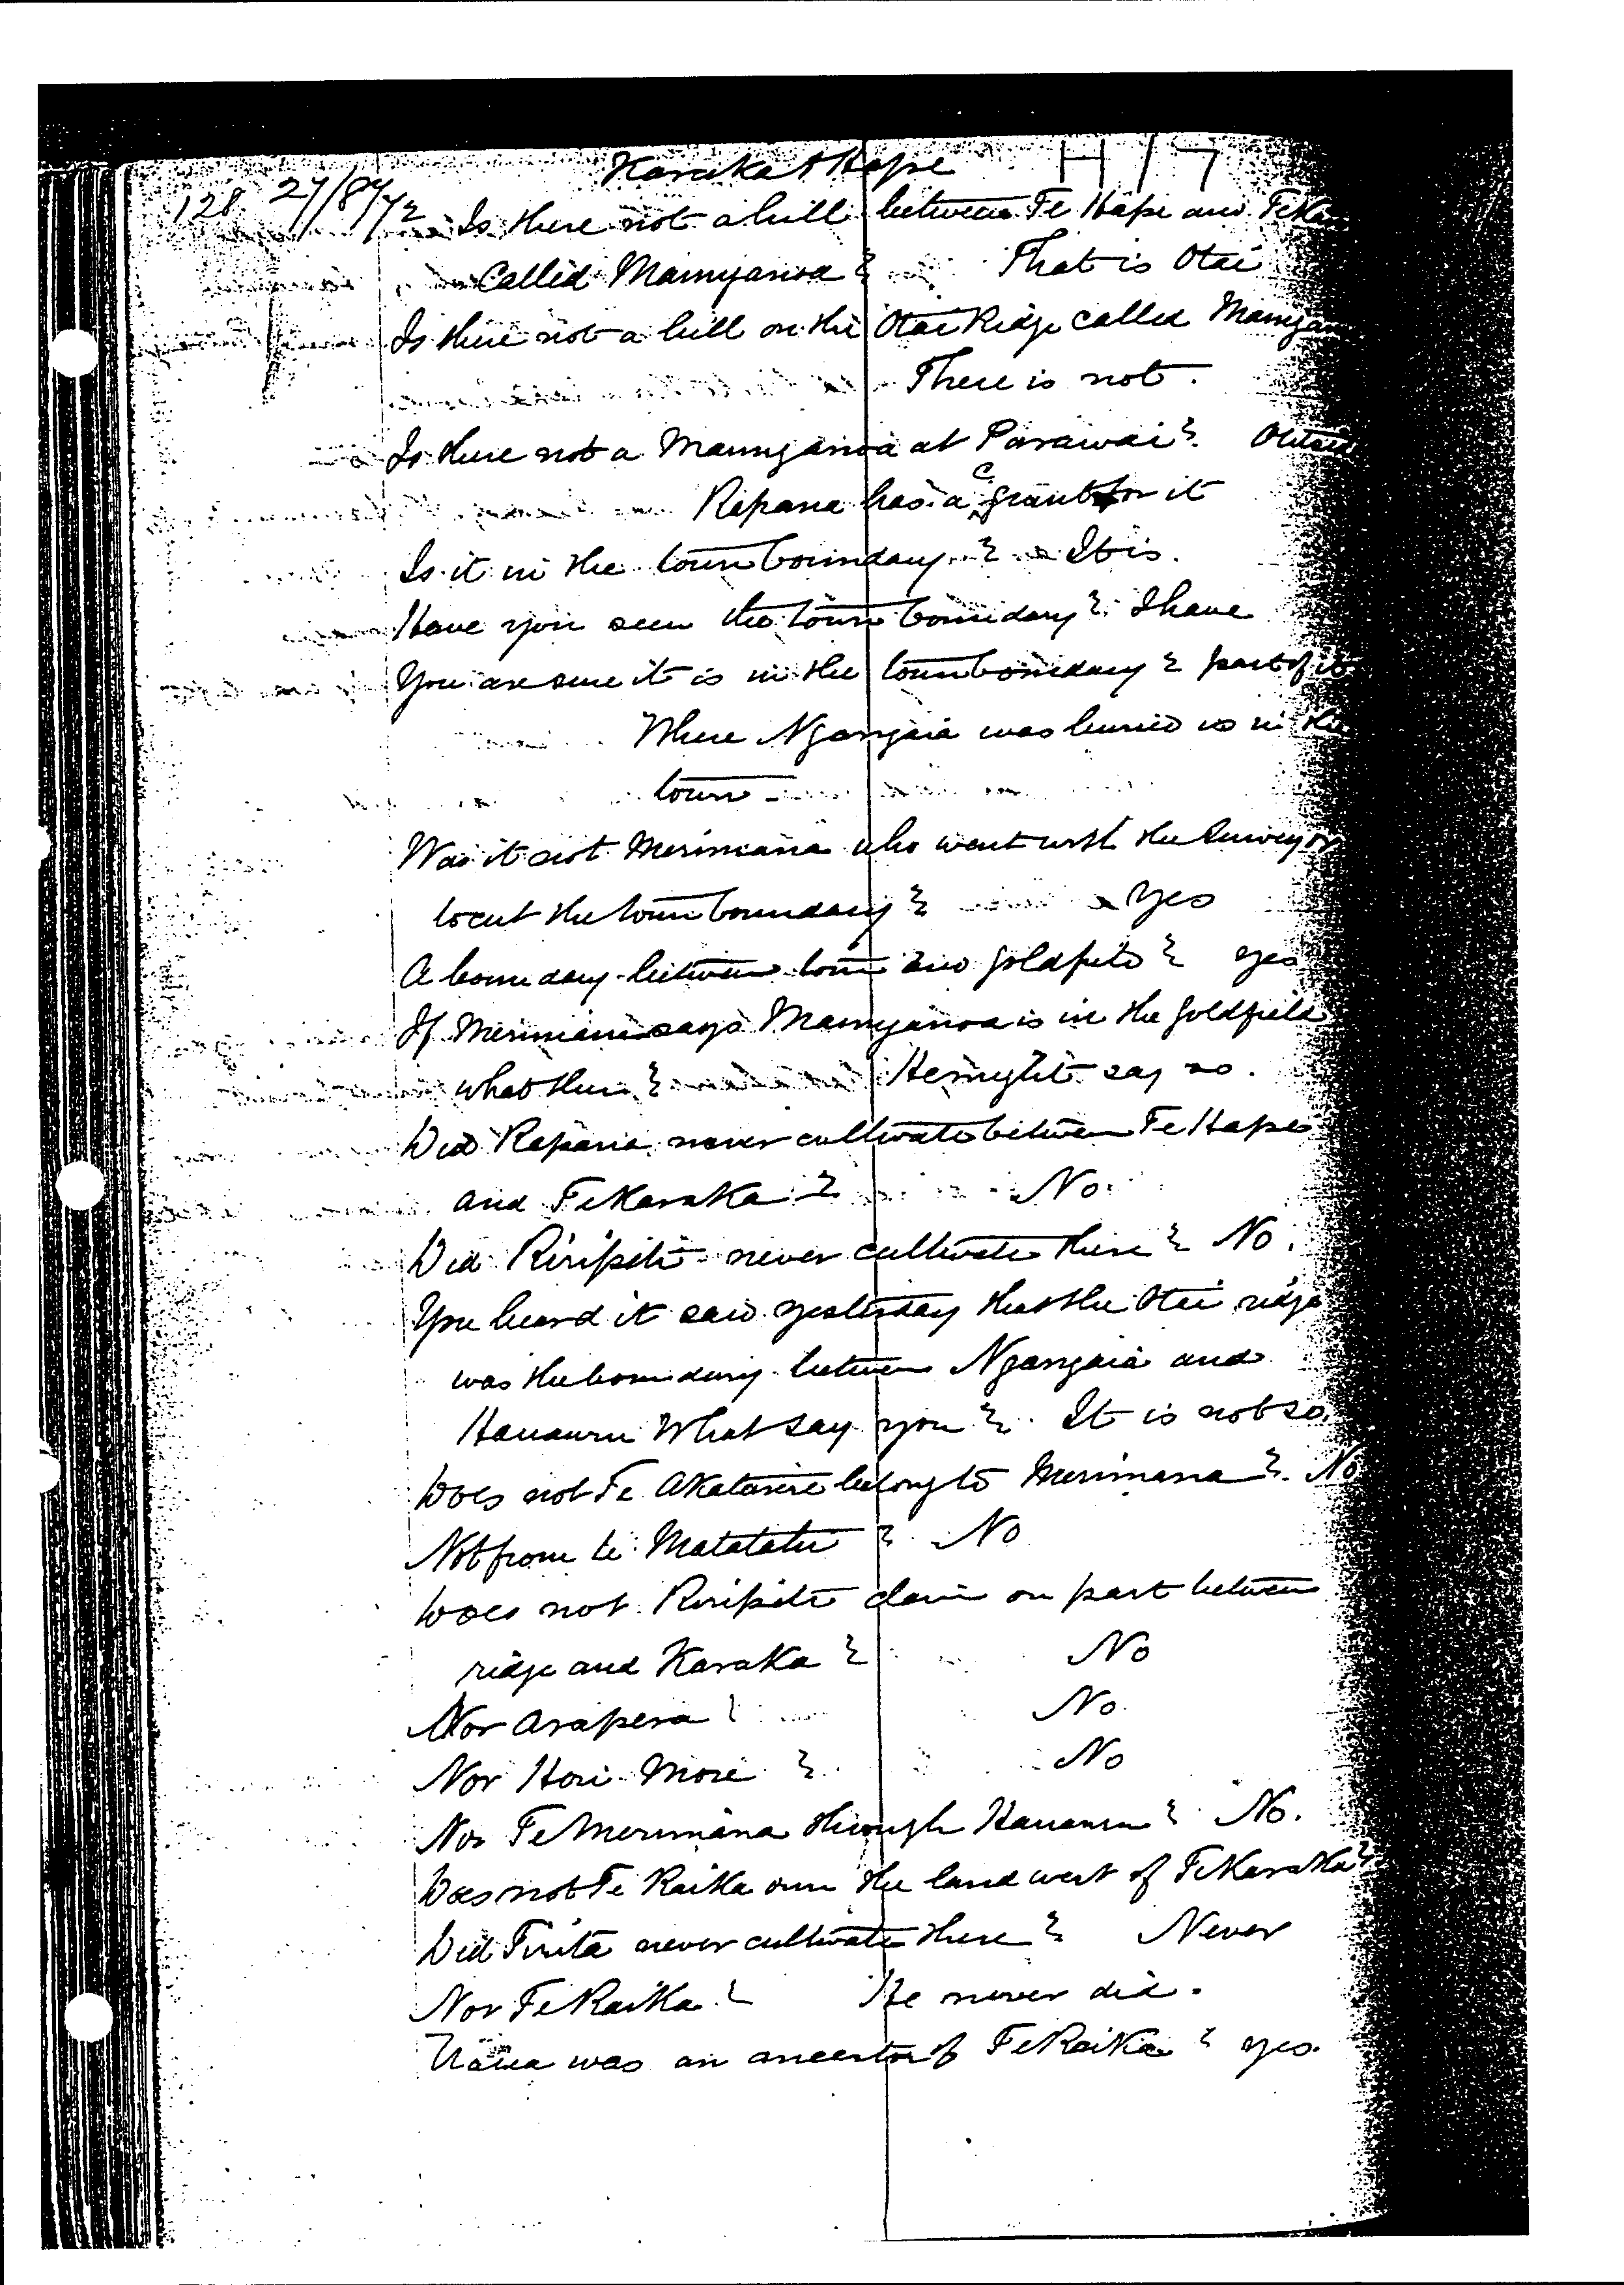 Karaka & Hape H 17
128 27/8/72 Is there not a hill between Te Hape and Te Ka
called Maunganoa? That is Otai
Is there not a hill on the Otai Ridge called Maungan
There is not.
Is there not a Maunganoa at Parawai?
Repana has a C. grant for it
Is it in the town boundary? It is.
Have you seen the town boundary? I have
You are sure it is in the town boundary? part of it
Where Ngangaia was buried is in the
town
Was it not Merimana who went with the Surveyor
to cut the town boundary? Yes
A boundary between town and goldfield? yes
If Merimana says Maunganoa is in the goldfield
what then? He might say so.
Did Repana never cultivate between Te Hape
and Te Karaka? No
Did Riripiti never cultivate there? No.
You heard it said yesterday that the Otai ridge
was the boundary between Ngangaia and
Hauauru What say you? It is not so.
Does not Te Akatarere belong to Merimana? No
Not from te Matatatu? No
Does not Riripiti claim on part between
ridge and Karaka? No
Nor Arapera? No.
Nor Hori More? No
Nor Te Merimana through Hauauru? No.
Does not Te Raika own the land west of Te Karaka?
Did Tirita never cultivate there? Never
Nor Te Raika? He never did.
was an ancestor of Te Raika? yes.